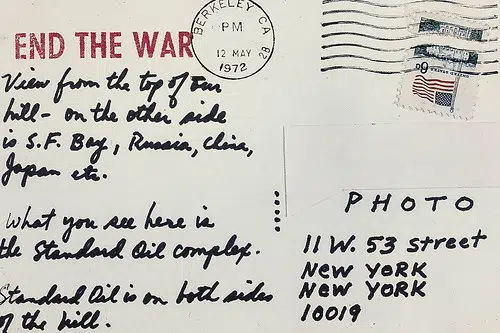 END THE WAR
BERKELEY CA
PM
12 MAY
1972
View from the top of our
hill - on the other side
is S.F. Bay, Russia, China,
Japan etc.
What you see here is
the Standard Oil complex.
Standard Oil is on both sides
of the hill.
PHOTO
11 W. 53 street
NEW YORK
NEW YORK
10019